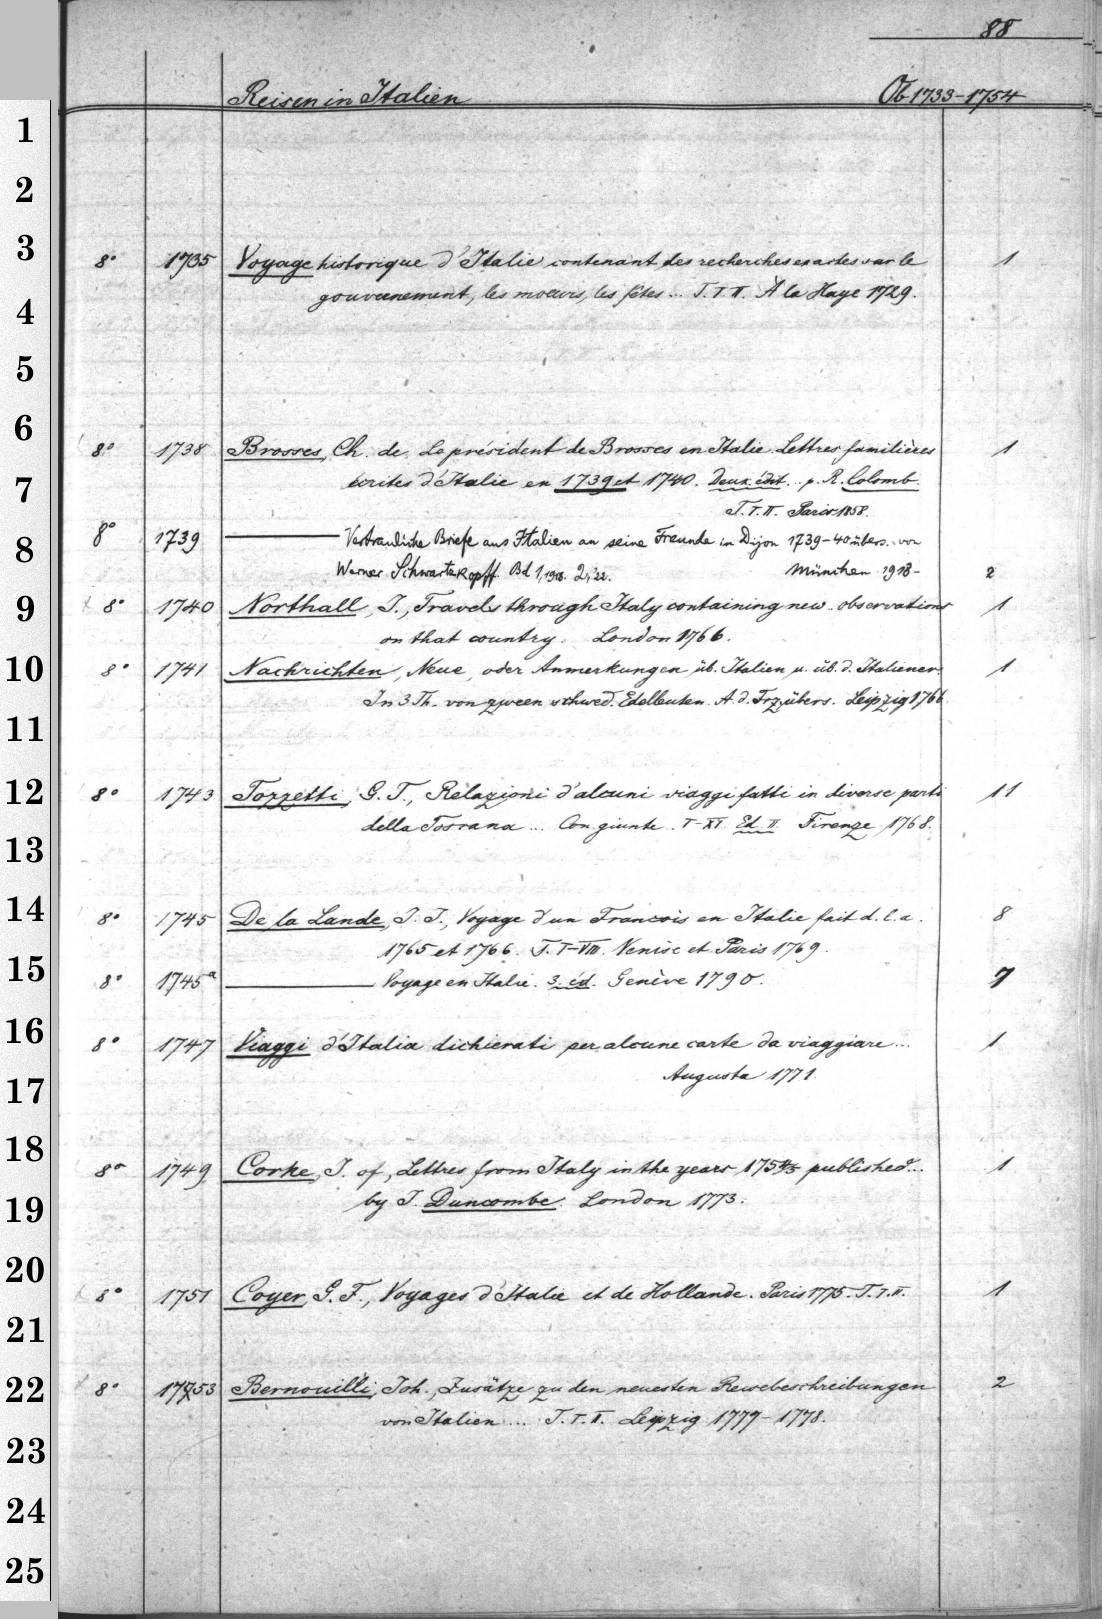 88
Reisen in Italien Ob 1733-1754
1
2
3 8° 1735 Voyage historique d'Italie contenant des recherches exactes sur le 1
gouvernement, les moeurs, les fêtes... T. I II. A la Haye 1729.
4
5
6 8° 1738 Brosses, Ch. de, Le président de Brosses en Italie. Lettres familières 1
7 écrites d'Italie en 1739 et 1740. Deux. édit... p. R. Colomb.
T. I. II. Paris 1858.
8 8° 1739 Vertrauliche Briefe aus Italien an seine Freunde in Dijon 1739-40 übers. von
Werner Schwartzkopff. Bd 1, 1918. 2, '22. München 1918- 2
9 8° 1740 Northall, J., Travels through Italy containing new observations 1
on that country. London 1766.
10 8° 1741 Nachrichten, Neue, oder Anmerkungen üb. Italien u. üb. d. Italiener. 1
In 3 Th. von zween schwed. Edelleuten. A. d. Frz. übers. Leipzig 1766
11
12 8° 1743 Tozzetti, G. T., Relazioni d'alcuni viaggi fatti in diverse parti 11
della Toscana... Con giunte. I-XI Ed. II. Firenze 1768.
13
14 8° 1745 De la Lande, J. J., Voyage d'un Francois en Italie fait d. l. a. 8
1765 et 1766. T. I-VIII. Venise et Paris 1769.
15 8° 1745a Voyage en Italie. 3. éd. Genève 1790. 7
16 8° 1747 Viaggi d'Italia dichierati per alcune carte da viaggiare... 1
17 Augusta 1771.
18 8° 1749 Corke, J. of, Lettres from Italy in the years 1754/5 published... 1
19 by J. Duncombe. London 1773.
20 8° 1751 Coyer, G. F., Voyages d'Italie et de Hollande. Paris 1775. T. I. II. 1
21
22 8° 1753 Bernouilli, Joh., Zusätze zu den neuesten Reisebeschreibungen 2
von Italien... T. I. II. Leipzig 1777-1778.
23
24
25